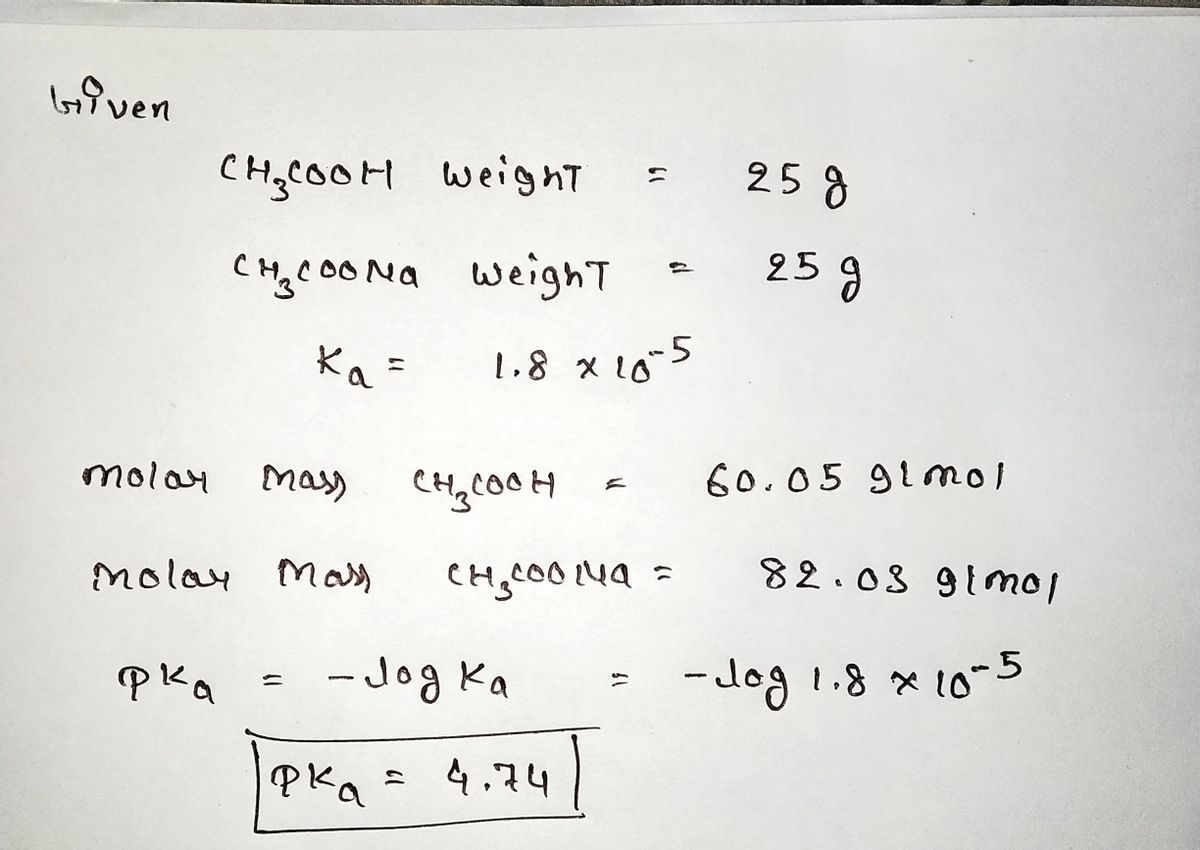 Given
CH₃COOH weight = 25 g
CH₃COONa weight = 25 g
Ka = 1.8 × 10⁻⁵
molar mass CH₃COOH = 60.05 g/mol
molar mass CH₃COONa = 82.03 g/mol
PKa = -log Ka = -log 1.8 × 10⁻⁵
PKa = 4.74